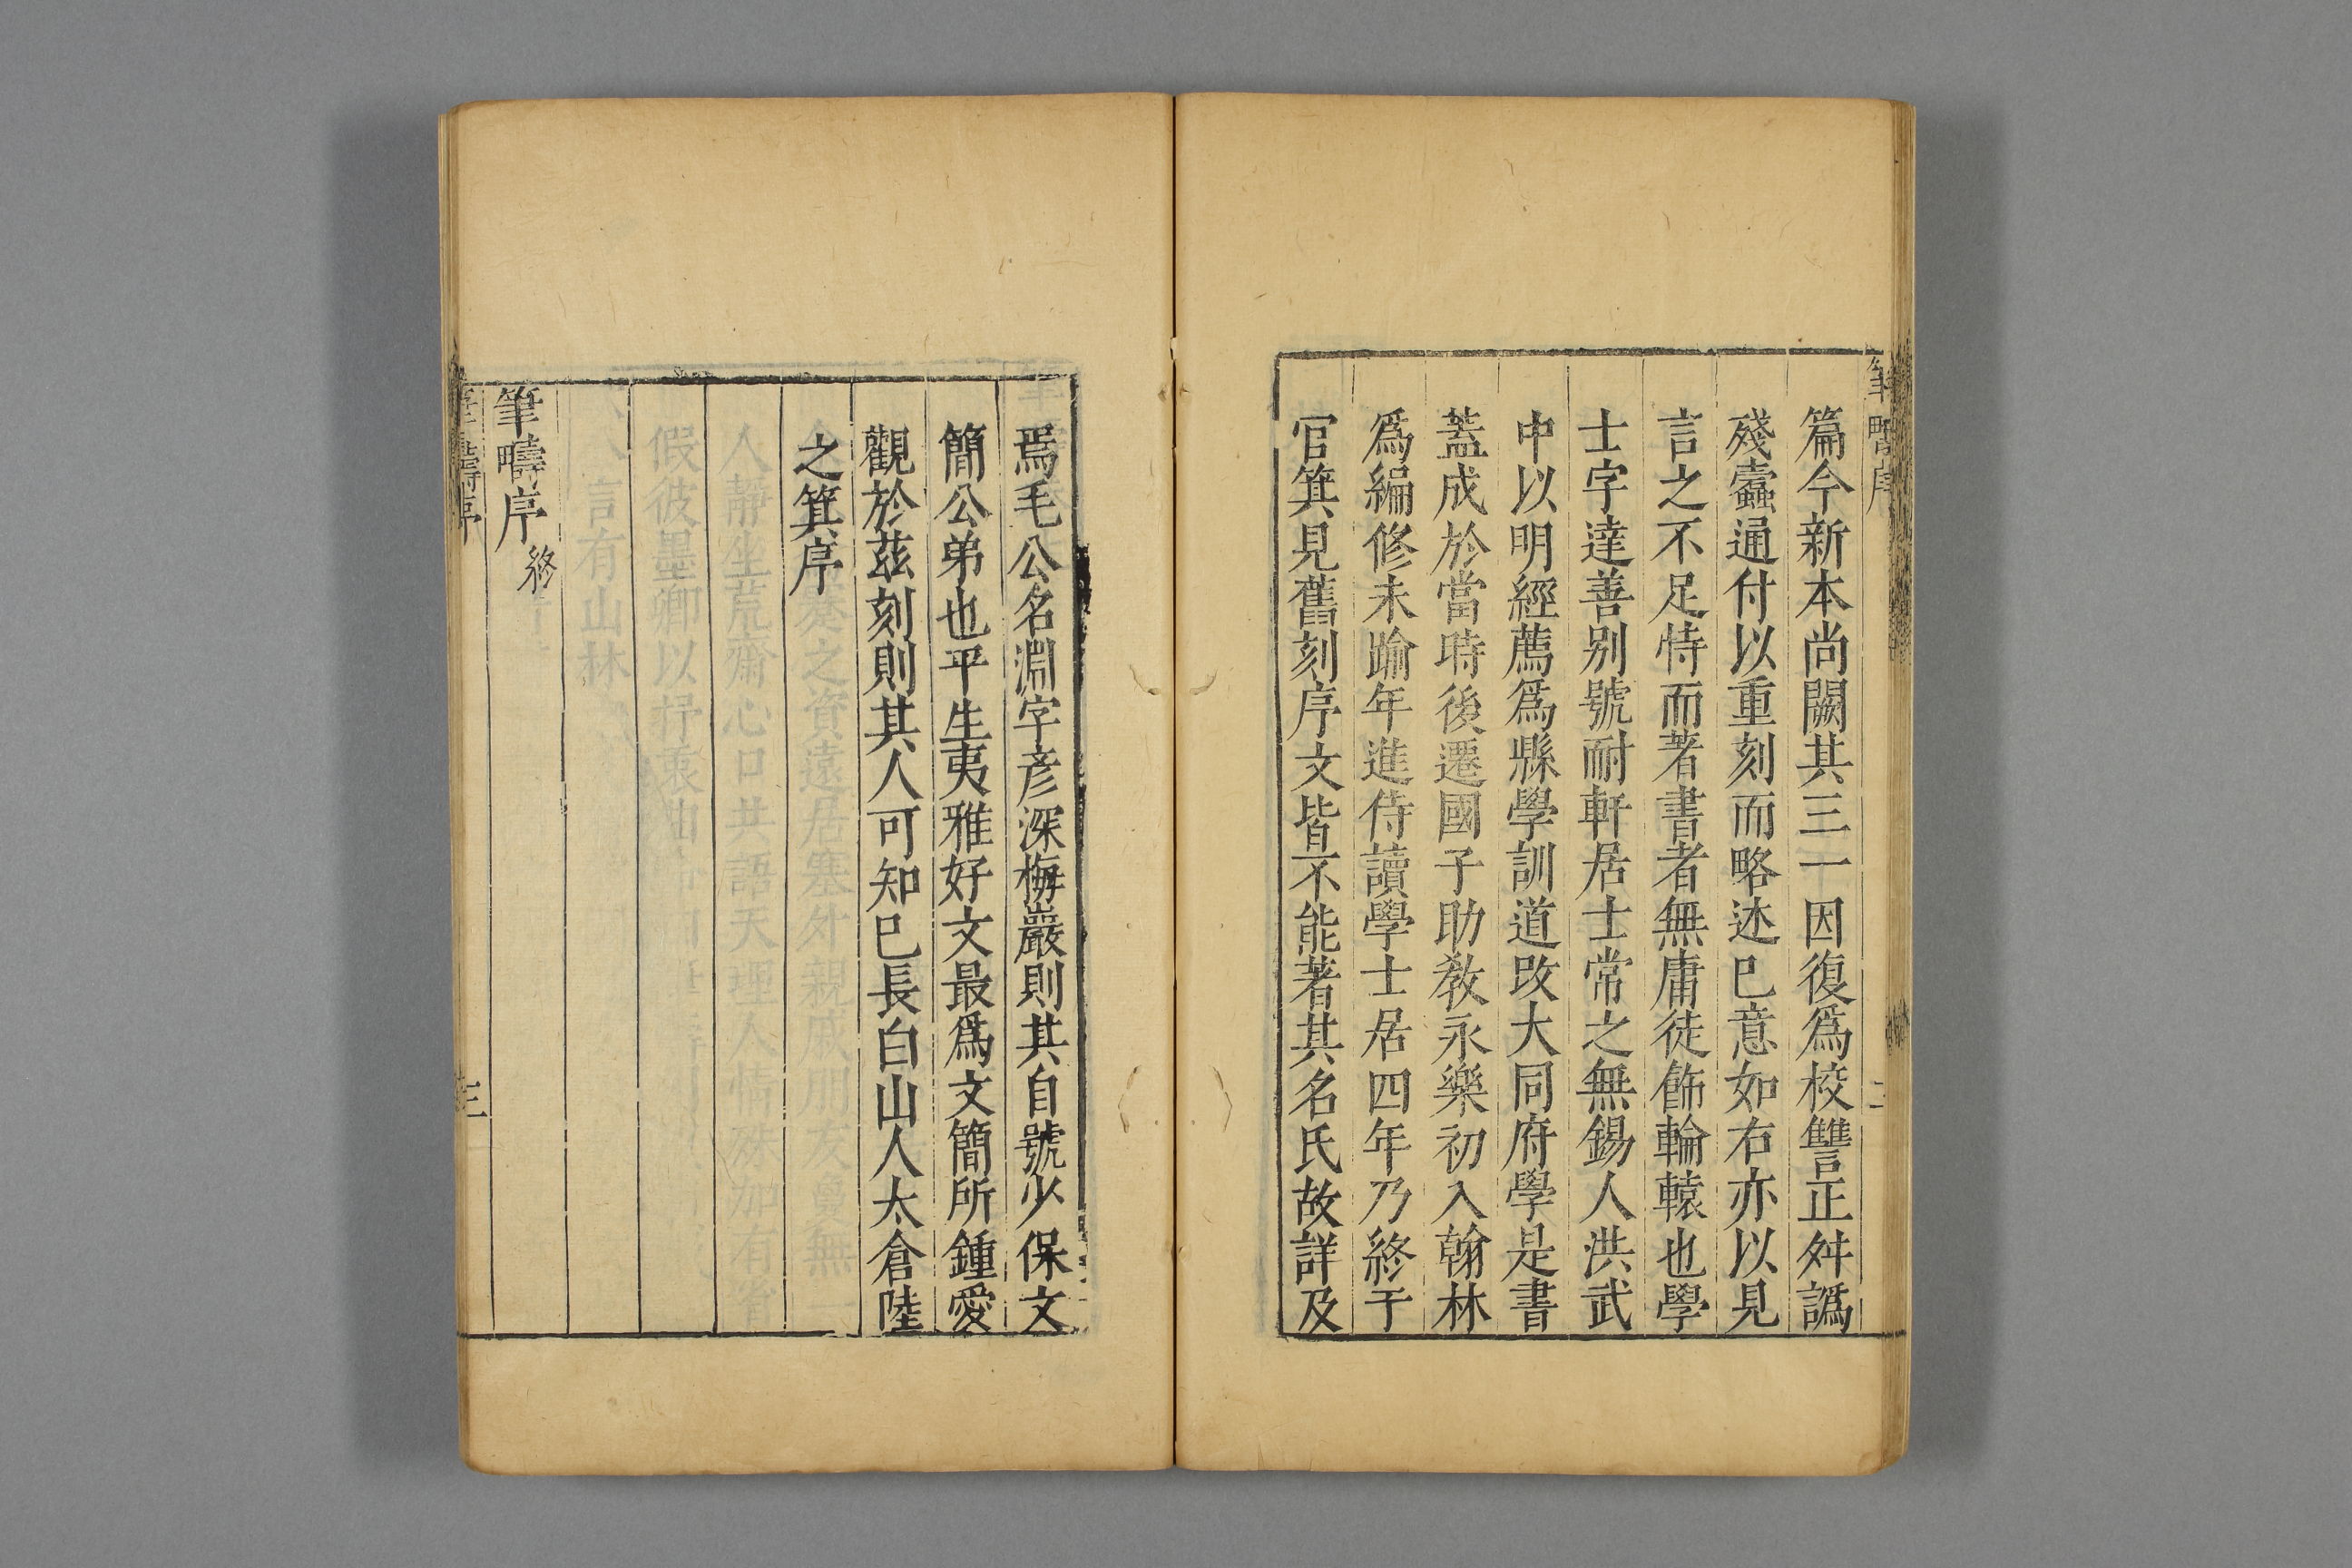 筆疇序
二
篇今新本尚闕其三一因復爲校讐正舛譌
殘蠧通付以重刻而略述已意如右亦以見
言之不足恃而著書者無庸徒飾輪轅也學
士字達善别號耐軒居士常之無錫人洪武
中以明經薦爲縣學訓道改大同府學是書
蓋成於當時後遷國子助教永樂初入翰林
爲編修未踰年進侍讀學士居四年乃終于
官箕見舊刻序文皆不能著其名氏故詳及
焉毛公名淵字彦深梅巖則其自號少保文
簡公弟也平生夷雅好文最爲文簡所鍾愛
觀於茲刻則其人可知已長白山人太倉陸
之箕序
筆疇序終
筆疇序
三